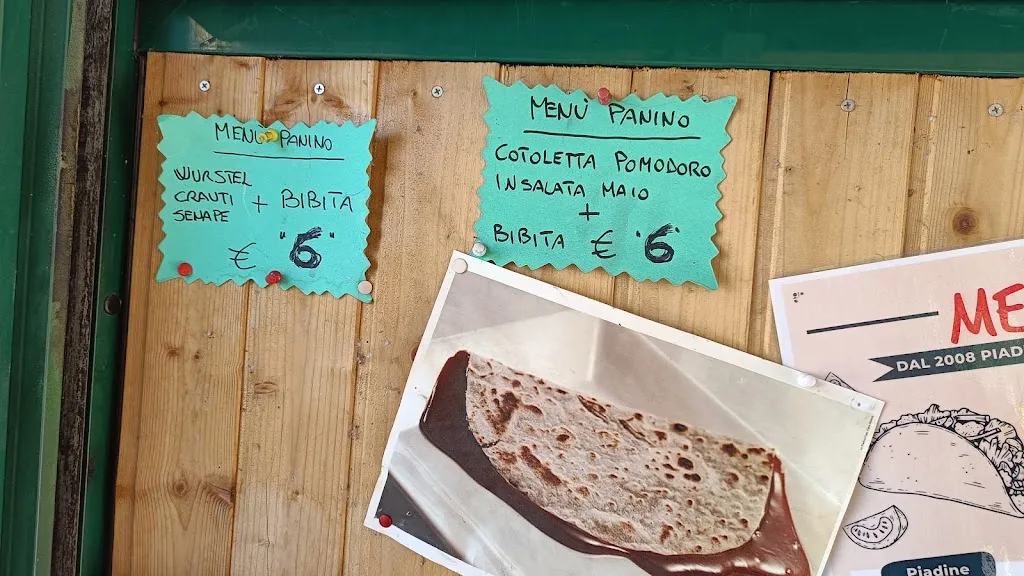 MENÙ PANINO
WURSTEL
CRAUTI + BIBITA
SENAPE
€ "6"
MENÙ PANINO
COTOLETTA POMODORO
INSALATA MAIO
+
BIBITA € "6"
DAL 2008
Piadine